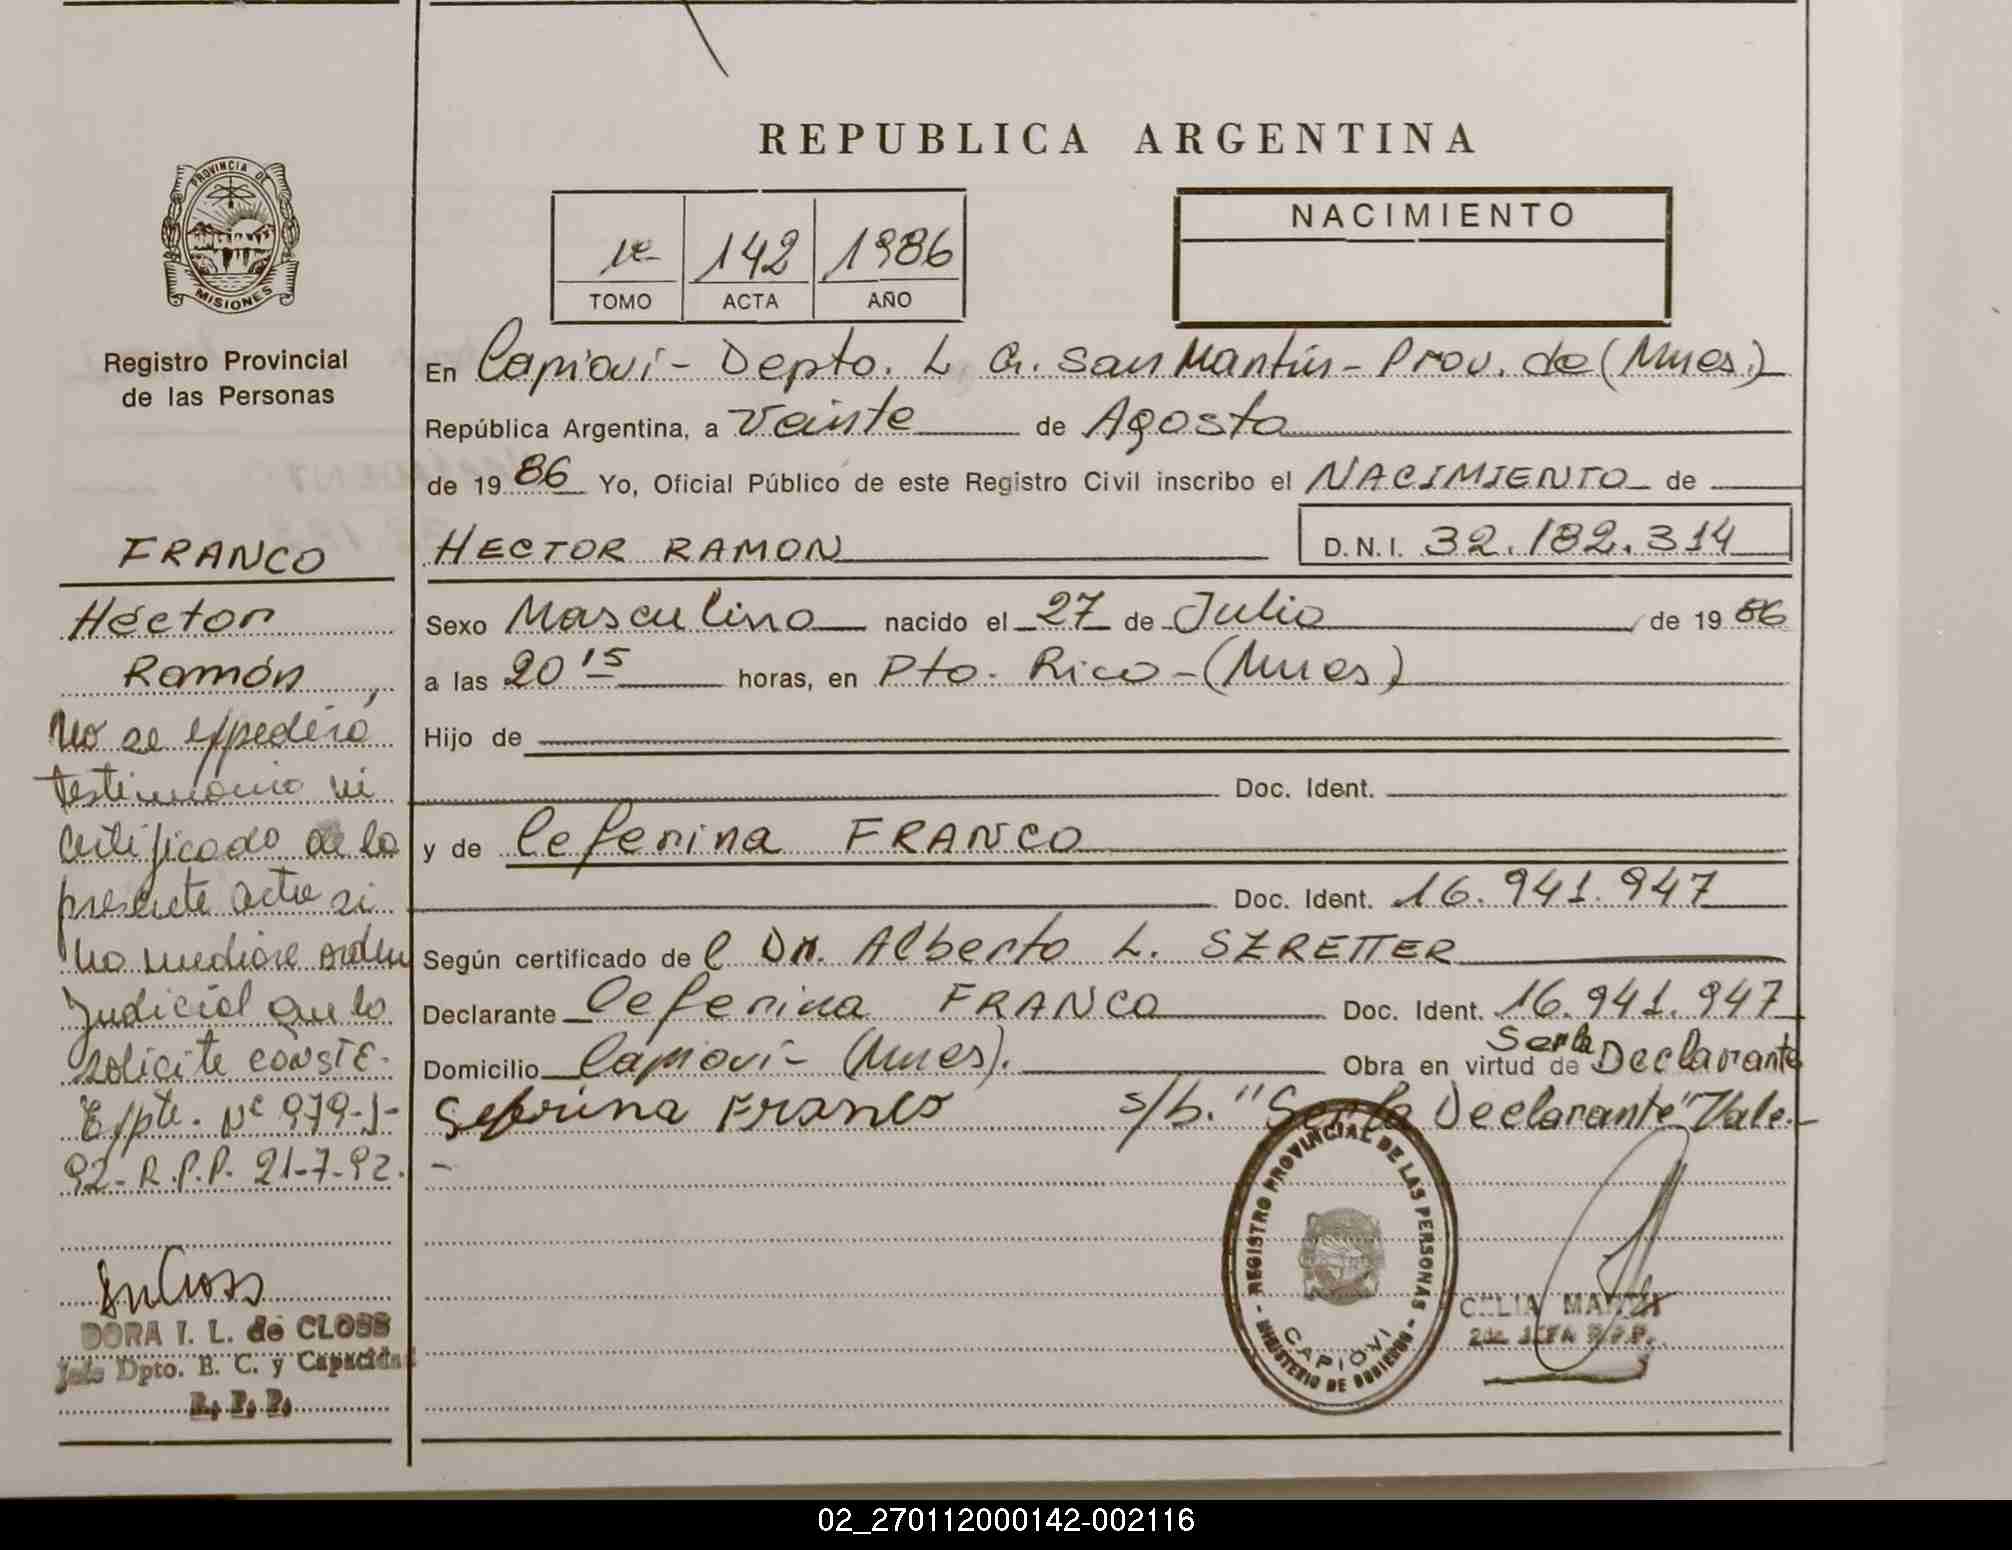 REPUBLICA ARGENTINA
PROVINCIA DE
MISIONES
Registro Provincial
de las Personas
1º 142 1986
TOMO ACTA AÑO
NACIMIENTO
En Capiovi - Depto. L. G. San Martín - Prov. de (Mnes.)
República Argentina, a veinte de Agosto
de 19 86 Yo, Oficial Público de este Registro Civil inscribo el NACIMIENTO de
HECTOR RAMON D.N.I. 32.182.314
Sexo Masculino nacido el 27 de Julio de 19 86
a las 20 15 horas, en Pto. Rico - (Mnes)
Hijo de
Doc. Ident.
y de Ceferina FRANCO
Doc. Ident. 16.941.947
Según certificado de l Dr. Alberto L. SZRETTER
Declarante Ceferina FRANCO Doc. Ident. 16.941.947
Domicilio Capiovi - (Mnes). Obra en virtud de Ser la Declarante
Seferina Franco s/b. "Ser la Declarante" Vale.-
FRANCO
Héctor
Ramón,
No se expedirá
testimonio ni
certificado de la
presente acta si
no mediare orden
Judicial que lo
solicite CONSTE-
Expte. Nº 979-J-
92- R.P.P. 21-7-92.
DORA I. L. de CLOSS
Jefe Dpto. E. C. y Capacidad
R. P. P.
REGISTRO PROVINCIAL DE LAS PERSONAS
CAPIOVI
MINISTERIO DE GOBIERNO
CELIA
2da JEFA R.P.P.
02_270112000142-002116